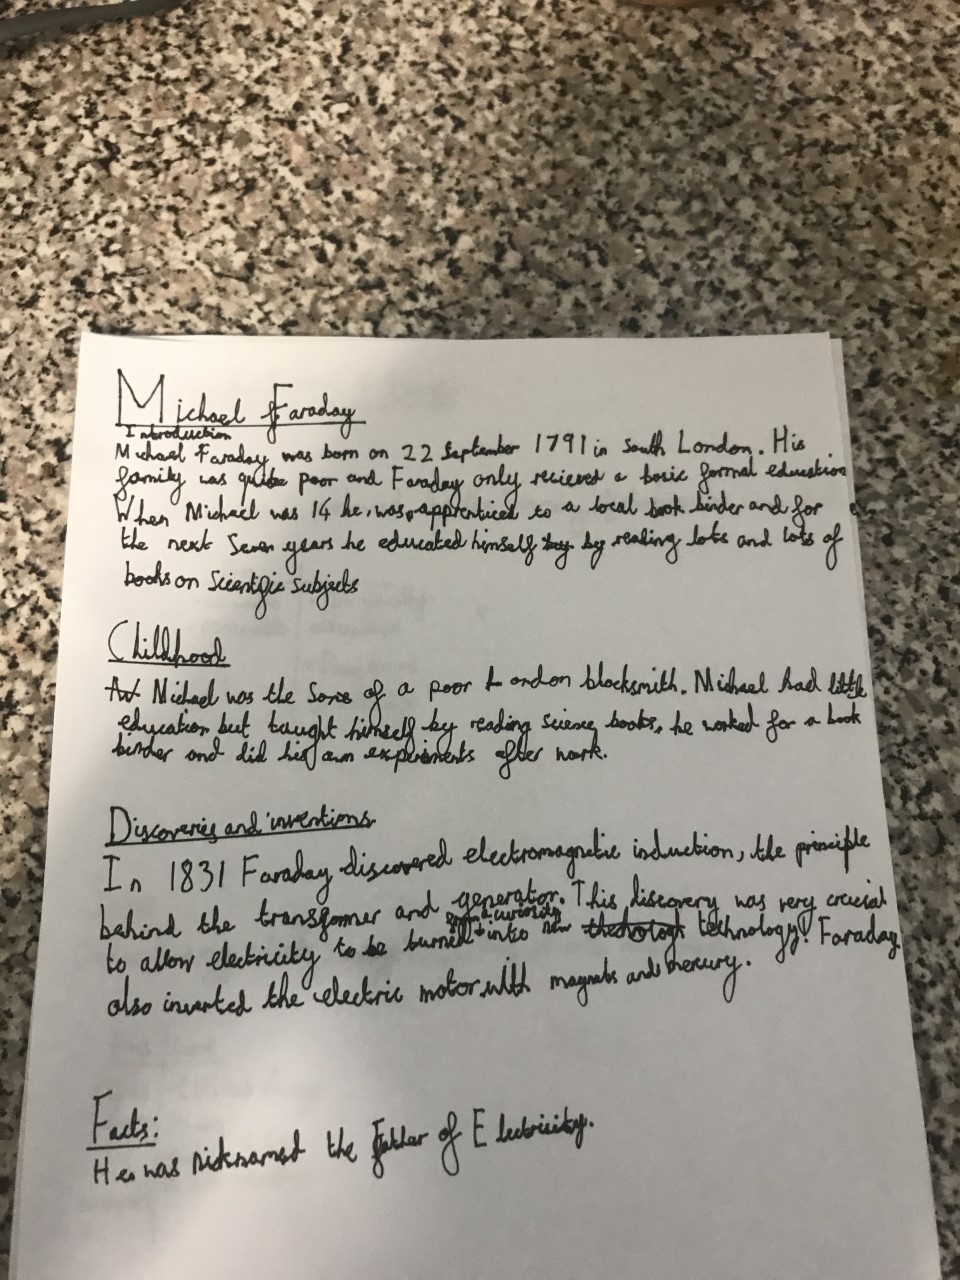 Michael Faraday
Introduction
Michael Faraday was born on 22 September 1791 in South London. His
family was quite poor and Faraday only recieved a basic formal education
When Michael was 14 he was apprenticed to a local book binder and for
the next Seven years he educated himself by by reading lots and lots of
books on Scientific subjects
Childhood
Michael was the Sone of a poor London blacksmith. Michael had little
education but taught himself by reading science books, he worked for a book
binder and did his own experiments after work.
Discoveries and inventions
In 1831 Faraday discovered electromagnetic induction, the principle
behind the transformer and generator. This discovery was very crucial
curiosity
to allow electricity to be turned into new technology! Faraday
also invented the electric motor with magnets and mercury.
Facts:
He was nicknamed the Father of Electricity.